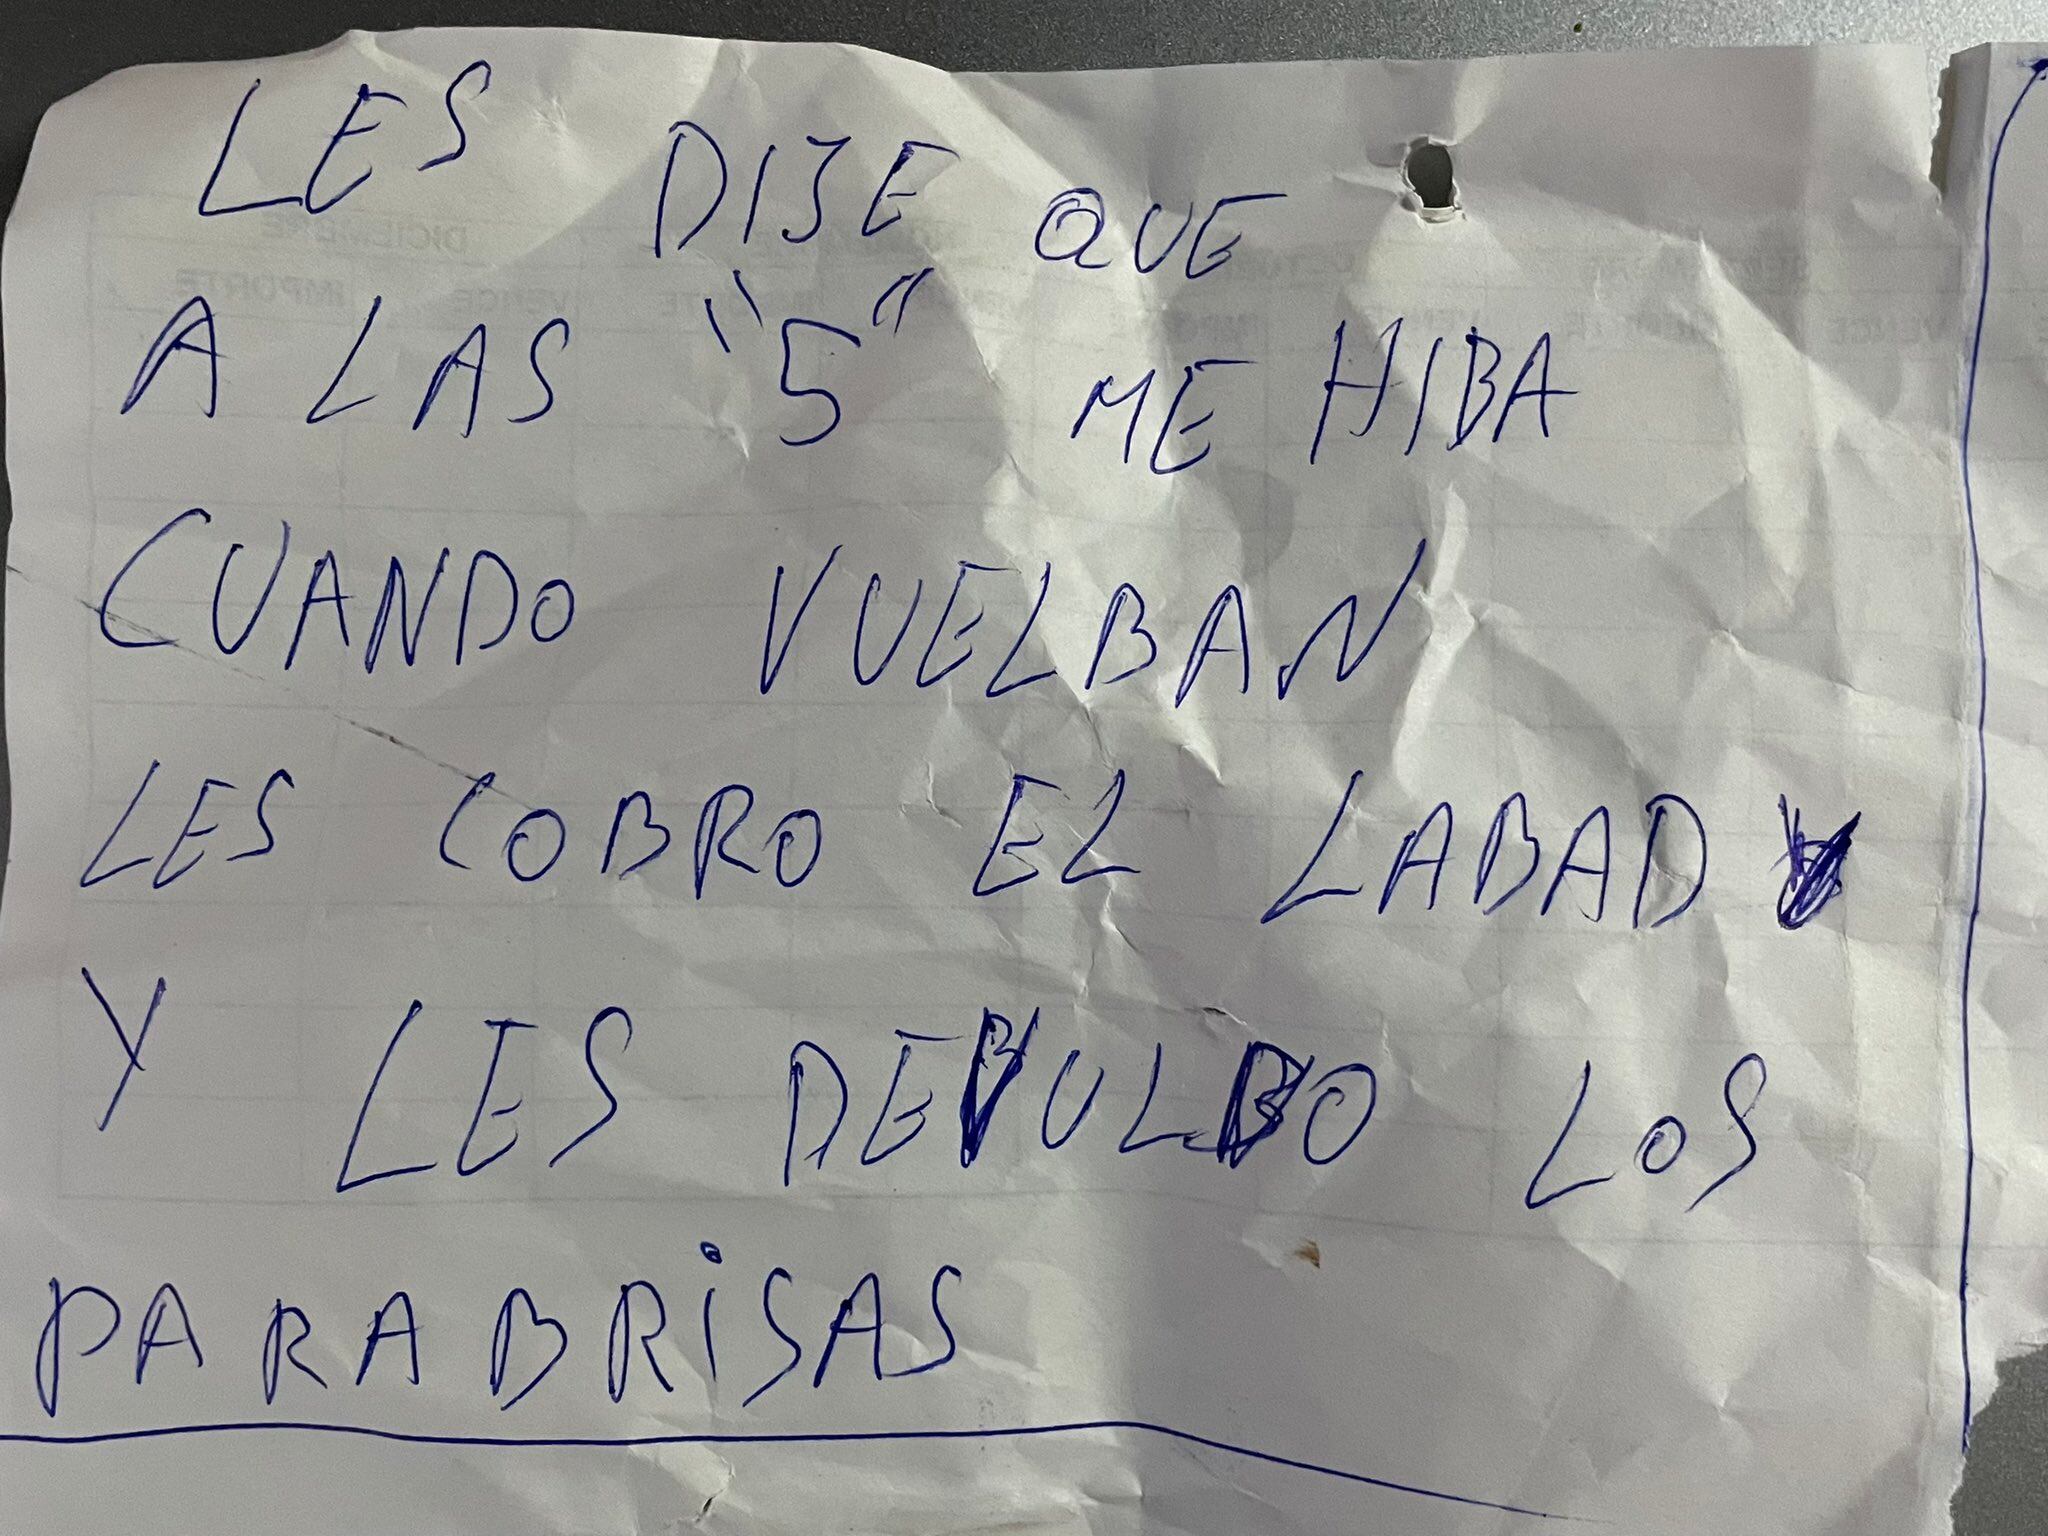 LES DIJE QUE
A LAS "5" ME HIBA
CUANDO VUELBAN
LES COBRO EL LABADO
Y LES DEVULBO LOS
PARABRISAS
DICIEMBRE
IMPORTE VENCE